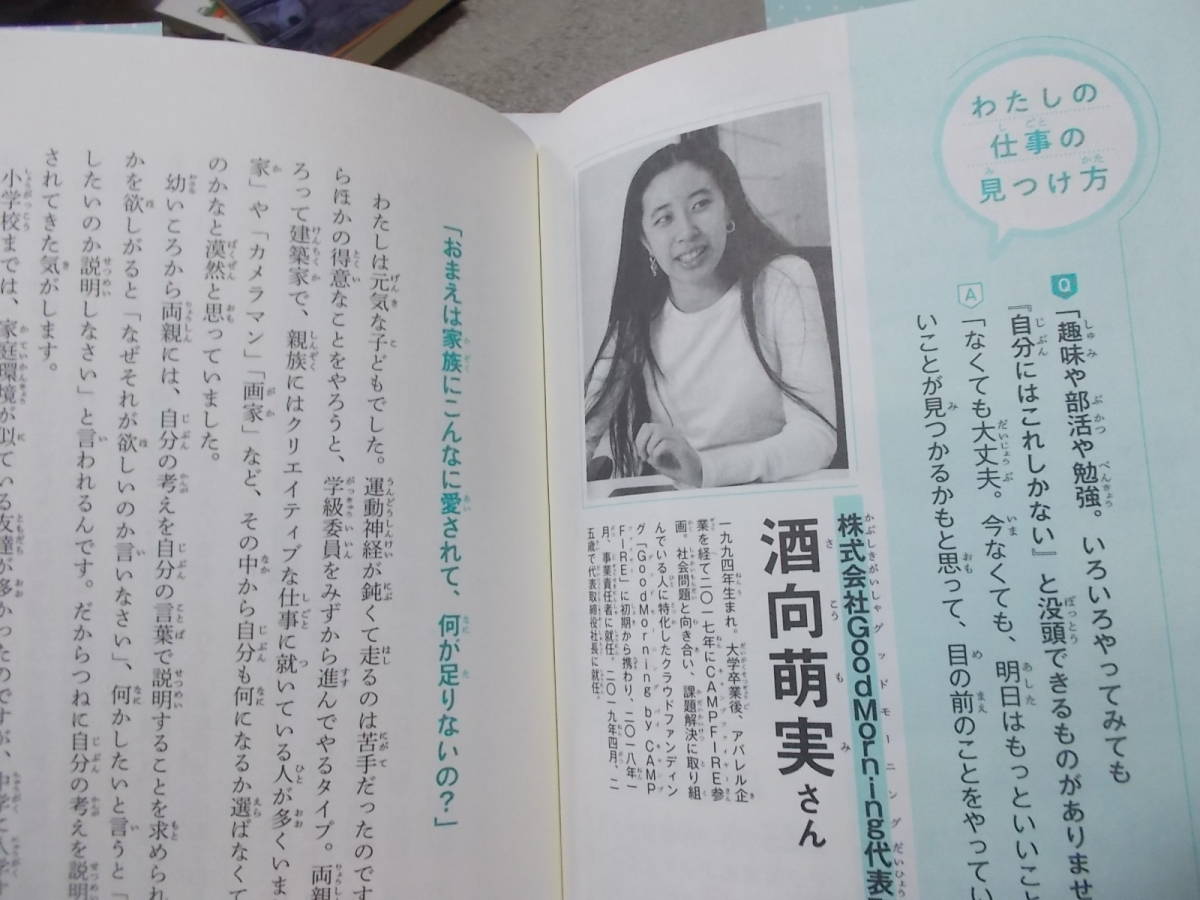 わたしの
仕事の
見つけ方
Q 「趣味や部活や勉強。いろいろやってみても
『自分にはこれしかない』と没頭できるものがありませ
A 「なくても大丈夫。今なくても、明日はもっといいこと
いことが見つかるかもと思って、目の前のことをやってい
株式会社GoodMorning代表
酒向萌実さん
一九九四年生まれ。大学卒業後、アパレル企
業を経て二〇一七年にCAMPFIRE参
画。社会問題と向き合い、課題解決に取り組
んでいる人に特化したクラウドファンディン
グ「GoodMorning by CAMP
FIRE」に初期から携わり、二〇一八年一
月、事業責任者に就任。二〇一九年四月、二
五歳で代表取締役社長に就任。
「おまえは家族にこんなに愛されて、何が足りないの?」
わたしは元気な子どもでした。運動神経が鈍くて走るのは苦手だったのです
らほかの得意なことをやろうと、学級委員をみずから進んでやるタイプ。両親
ろって建築家で、親族にはクリエイティブな仕事に就いている人が多くいま
家」や「カメラマン」「画家」など、その中から自分も何になるか選ばなくて
のかなと漠然と思っていました。
幼いころから両親には、自分の考えを自分の言葉で説明することを求められ
かを欲しがると「なぜそれが欲しいのか言いなさい」、何かしたいと言うと「
したいのか説明しなさい」と言われるんです。だからつねに自分の考えを説明
されてきた気がします。
小学校までは、家庭環境が似ている友達が多かったのですが、中学に入学す